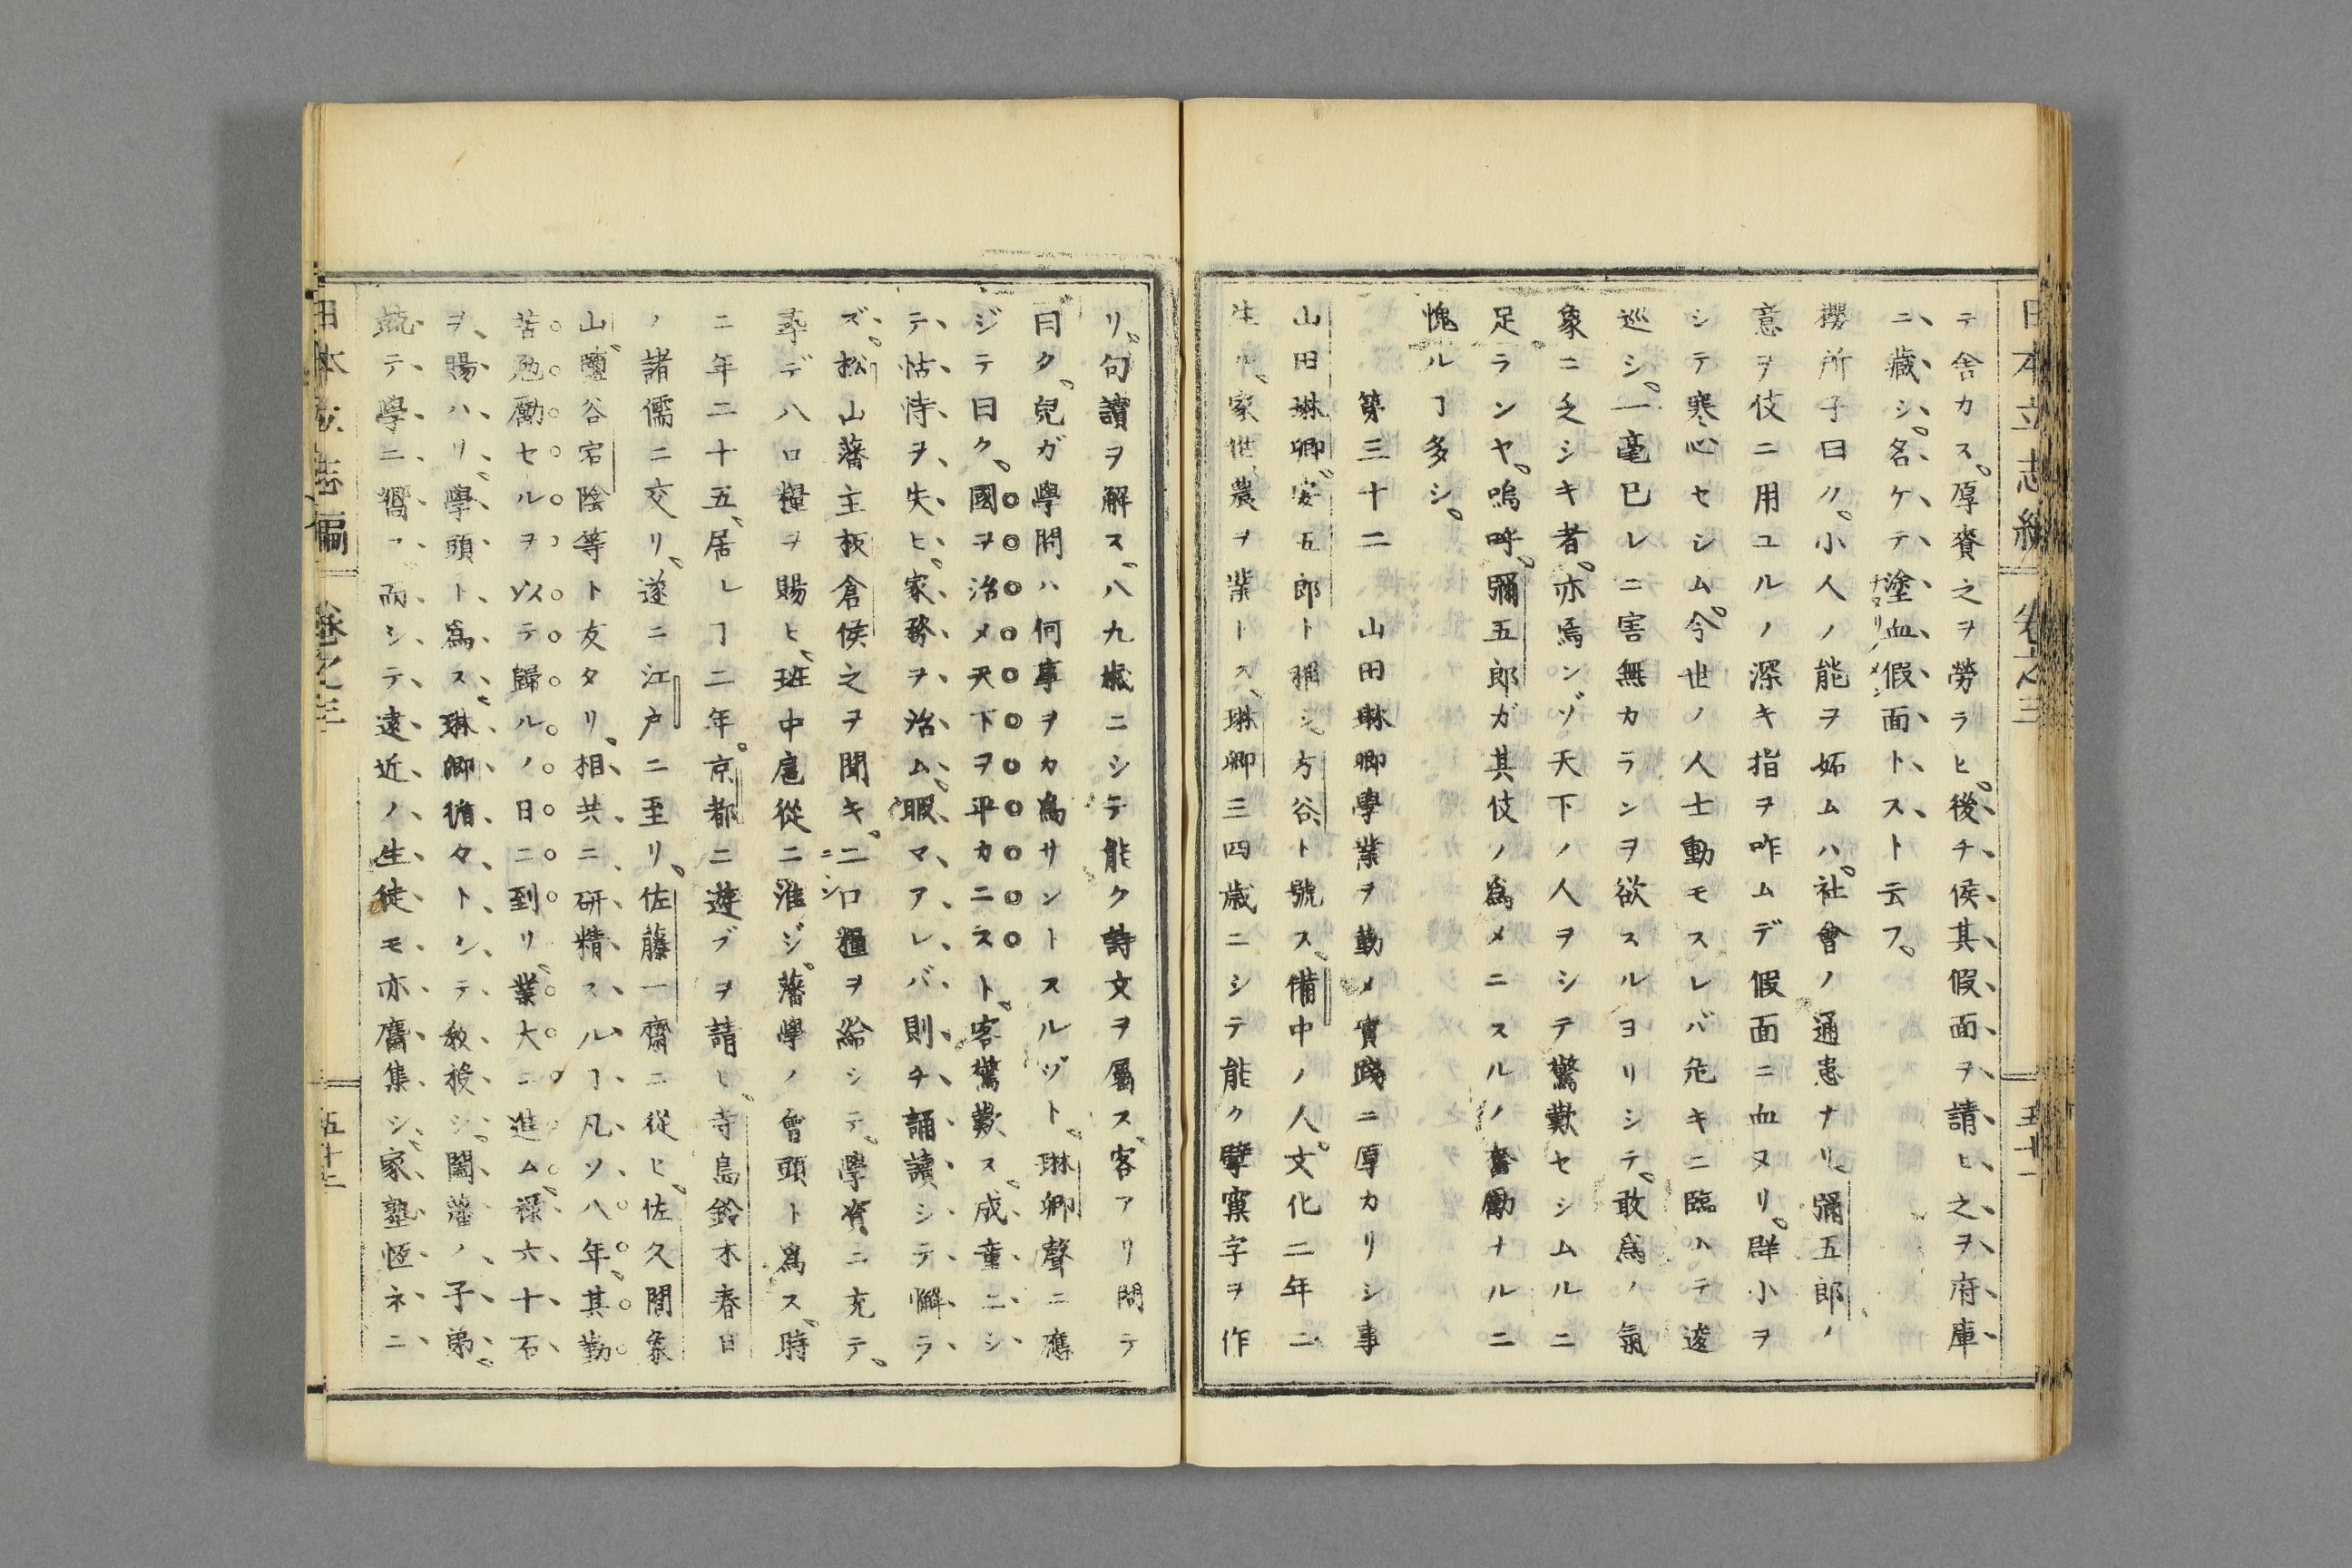 日本立志編 卷之三 五十一
テ舍カス。厚賚之ヲ勞ラヒ。後チ侯其假面ヲ請ヒ之ヲ府庫
ニ藏シ。名ケテ塗血假面トスト云フ。
櫻所子曰ク。小人ノ能ヲ妬ムハ。社會ノ通患ナリ。彌五郎ノ
意ヲ伎ニ用ユルノ深キ指ヲ咋ムデ假面ニ血ヌリ。羣小ヲ
シテ寒心セシム。今世ノ人士動モスレバ危キニ臨ハテ逡
巡シ。一毫己レニ害無カランヲ欲スルヨリシテ。敢爲ノ氣
象ニ乏シキ者。亦焉ンゾ天下ノ人ヲシテ驚歎セシムルニ
足ランヤ。嗚呼。彌五郎ガ其伎ノ爲メニスルノ奮勵ナルニ
愧ルヿ多シ。
第三十二 山田琳卿學業ヲ勤メ實踐ニ厚カリシ事
山田琳卿、安五郎ト稱シ、方谷ト號ス、備中ノ人。文化二年二
生ル、家世農ヲ業トス、琳卿三四歲ニシテ能ク擘窠字ヲ作
リ。句讀ヲ解ス、八九歲ニシテ能ク詩文ヲ屬ス、客アリ問テ
曰ク、兒ガ學問ハ何事ヲカ爲サントスルヅト、琳卿聲ニ應
ジテ曰ク、國ヲ治メ天下ヲ平カニスト、客驚歎ス、成童ニシ
テ怙恃ヲ失ヒ、家務ヲ治ム、暇マアレバ則チ誦讀シテ懈ラ
ズ、松山藩主板倉侯之ヲ聞キ、二口糧ヲ給シテ、學資ニ充テ、
尋デ八口糧ヲ賜ヒ、班中扈從ニ准ジ。藩學ノ會頭ト爲ス、時
ニ年二十五、居レヿ二年。京都ニ遊ブヲ請ヒ、寺島鈴木春日
ノ諸儒ニ交リ、遂ニ江戶ニ至リ、佐藤一齋ニ從ヒ、佐久間象
山、鹽谷宕陰等ト友タリ、相共ニ研精スルヿ凡ソ八年、其勤
苦勉勵セルヲ以テ歸ルノ日ニ到リ、業大ニ進ム、祿六十石
ヲ賜ハリ、學頭ト爲ス、琳卿循々トシテ敎授シ、闔藩ノ子弟、
競テ學ニ嚮フ、而シテ遠近ノ生徒モ亦麕集シ、家塾恆ネニ
日本立志編 卷之三 五十二